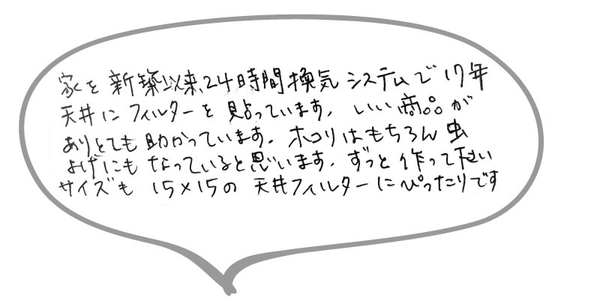 家を新築以来、24時間換気システムで17年
天井にフィルターを貼っています。いい商品が
ありとても助かっています。ホコリはもちろん虫
よけにもなっていると思います。ずっと作って下さい
サイズも 15×15の天井フィルターにぴったりです